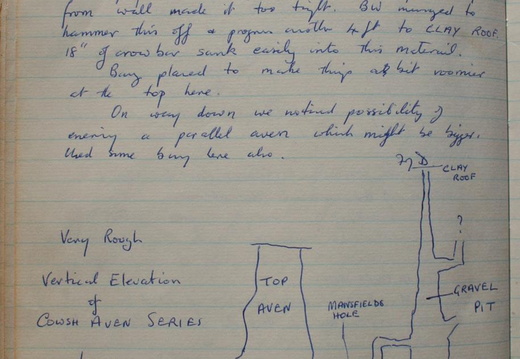 from wall made it too tight. BW managed to
hammer this off & progress another 4ft to CLAY ROOF
18" of crowbar sank easily into this material.
Bang placed to make things a bit roomier
at the top here.
On way down we noticed possibility of
entering a parallel aven which might be bigger.
Used some bang here also.
CLAY
ROOF
?
Very Rough
Vertical Elevation
of
COWSH AVEN SERIES
TOP
AVEN
MANSFIELDS
HOLE
GRAVEL
PIT